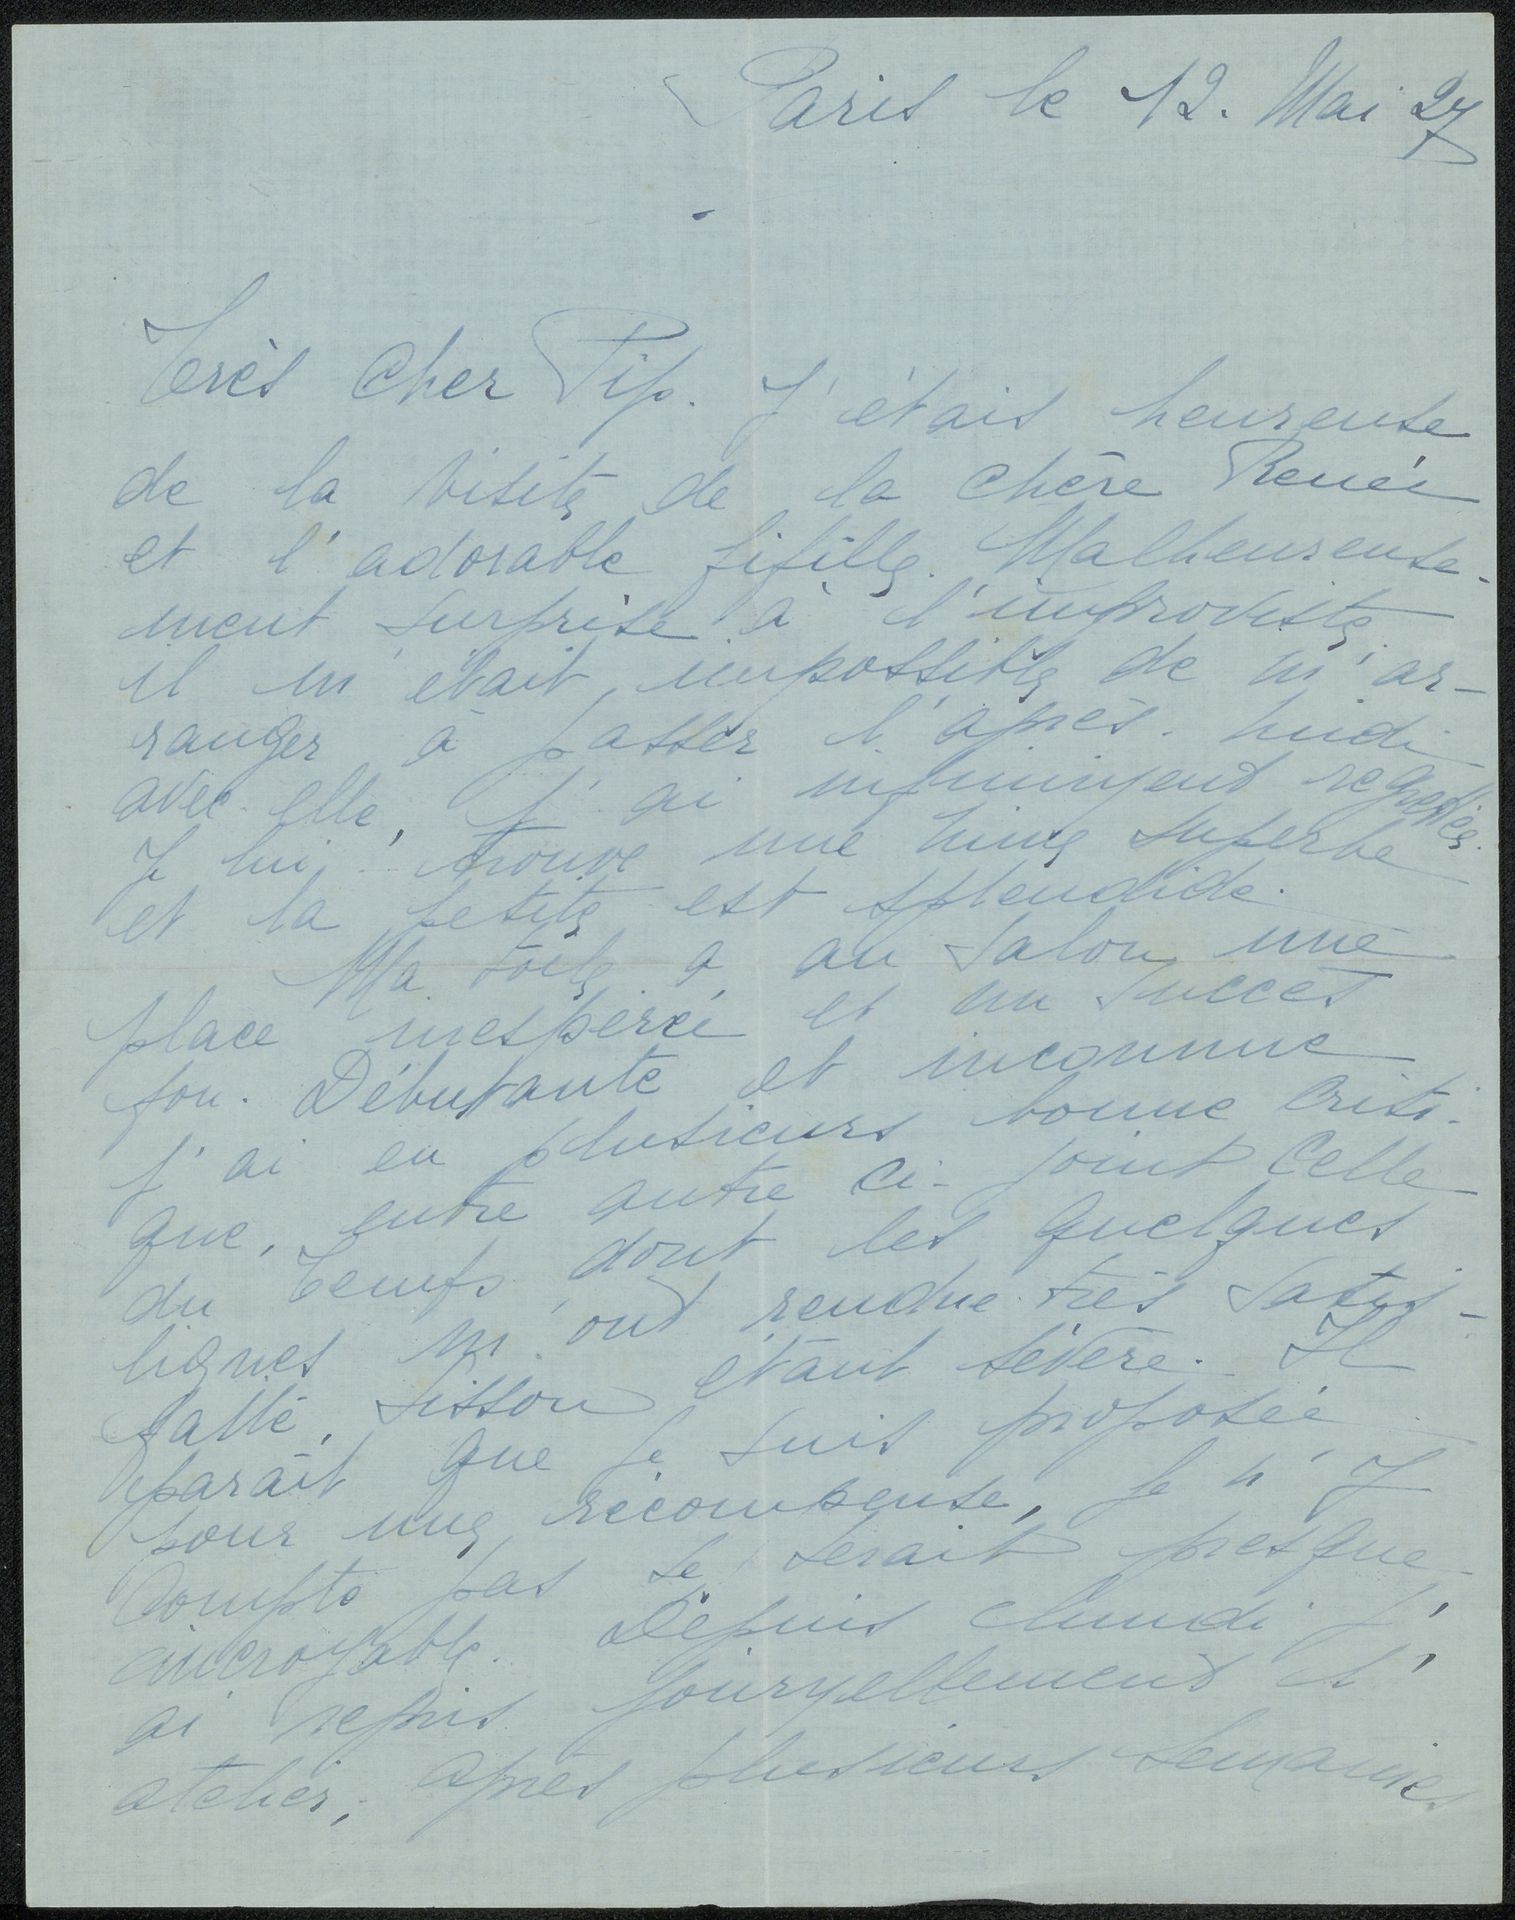 Paris le 12. Mai 27
Très cher Pip. J'étais heureuse
de la visite de la chère Renée
et l'adorable fifille. Malheureuse-
ment surprise à l'improviste
il m'était impossible de m'ar-
ranger à passer l'après-midi
avec elle, j'ai infiniment regrettée.
J lui trouve une mine superbe
et la petite est splendide.
Ma toile a au Salon une
place inesperée et un succès
fou. Débutante et inconnue
j'ai eu plusieurs bonne criti-
que, entre autre ci-joint celle
du Temps dont les quelques
lignes m'ont rendue très satis-
faite, Sisson étant sévère. Il
paraît que je suis proposée
pour une récompense, je n'y
compte pas se serait presque
incroyable. Depuis lundi j'
ai repris journellement l'
atelier, après plusieurs semaines